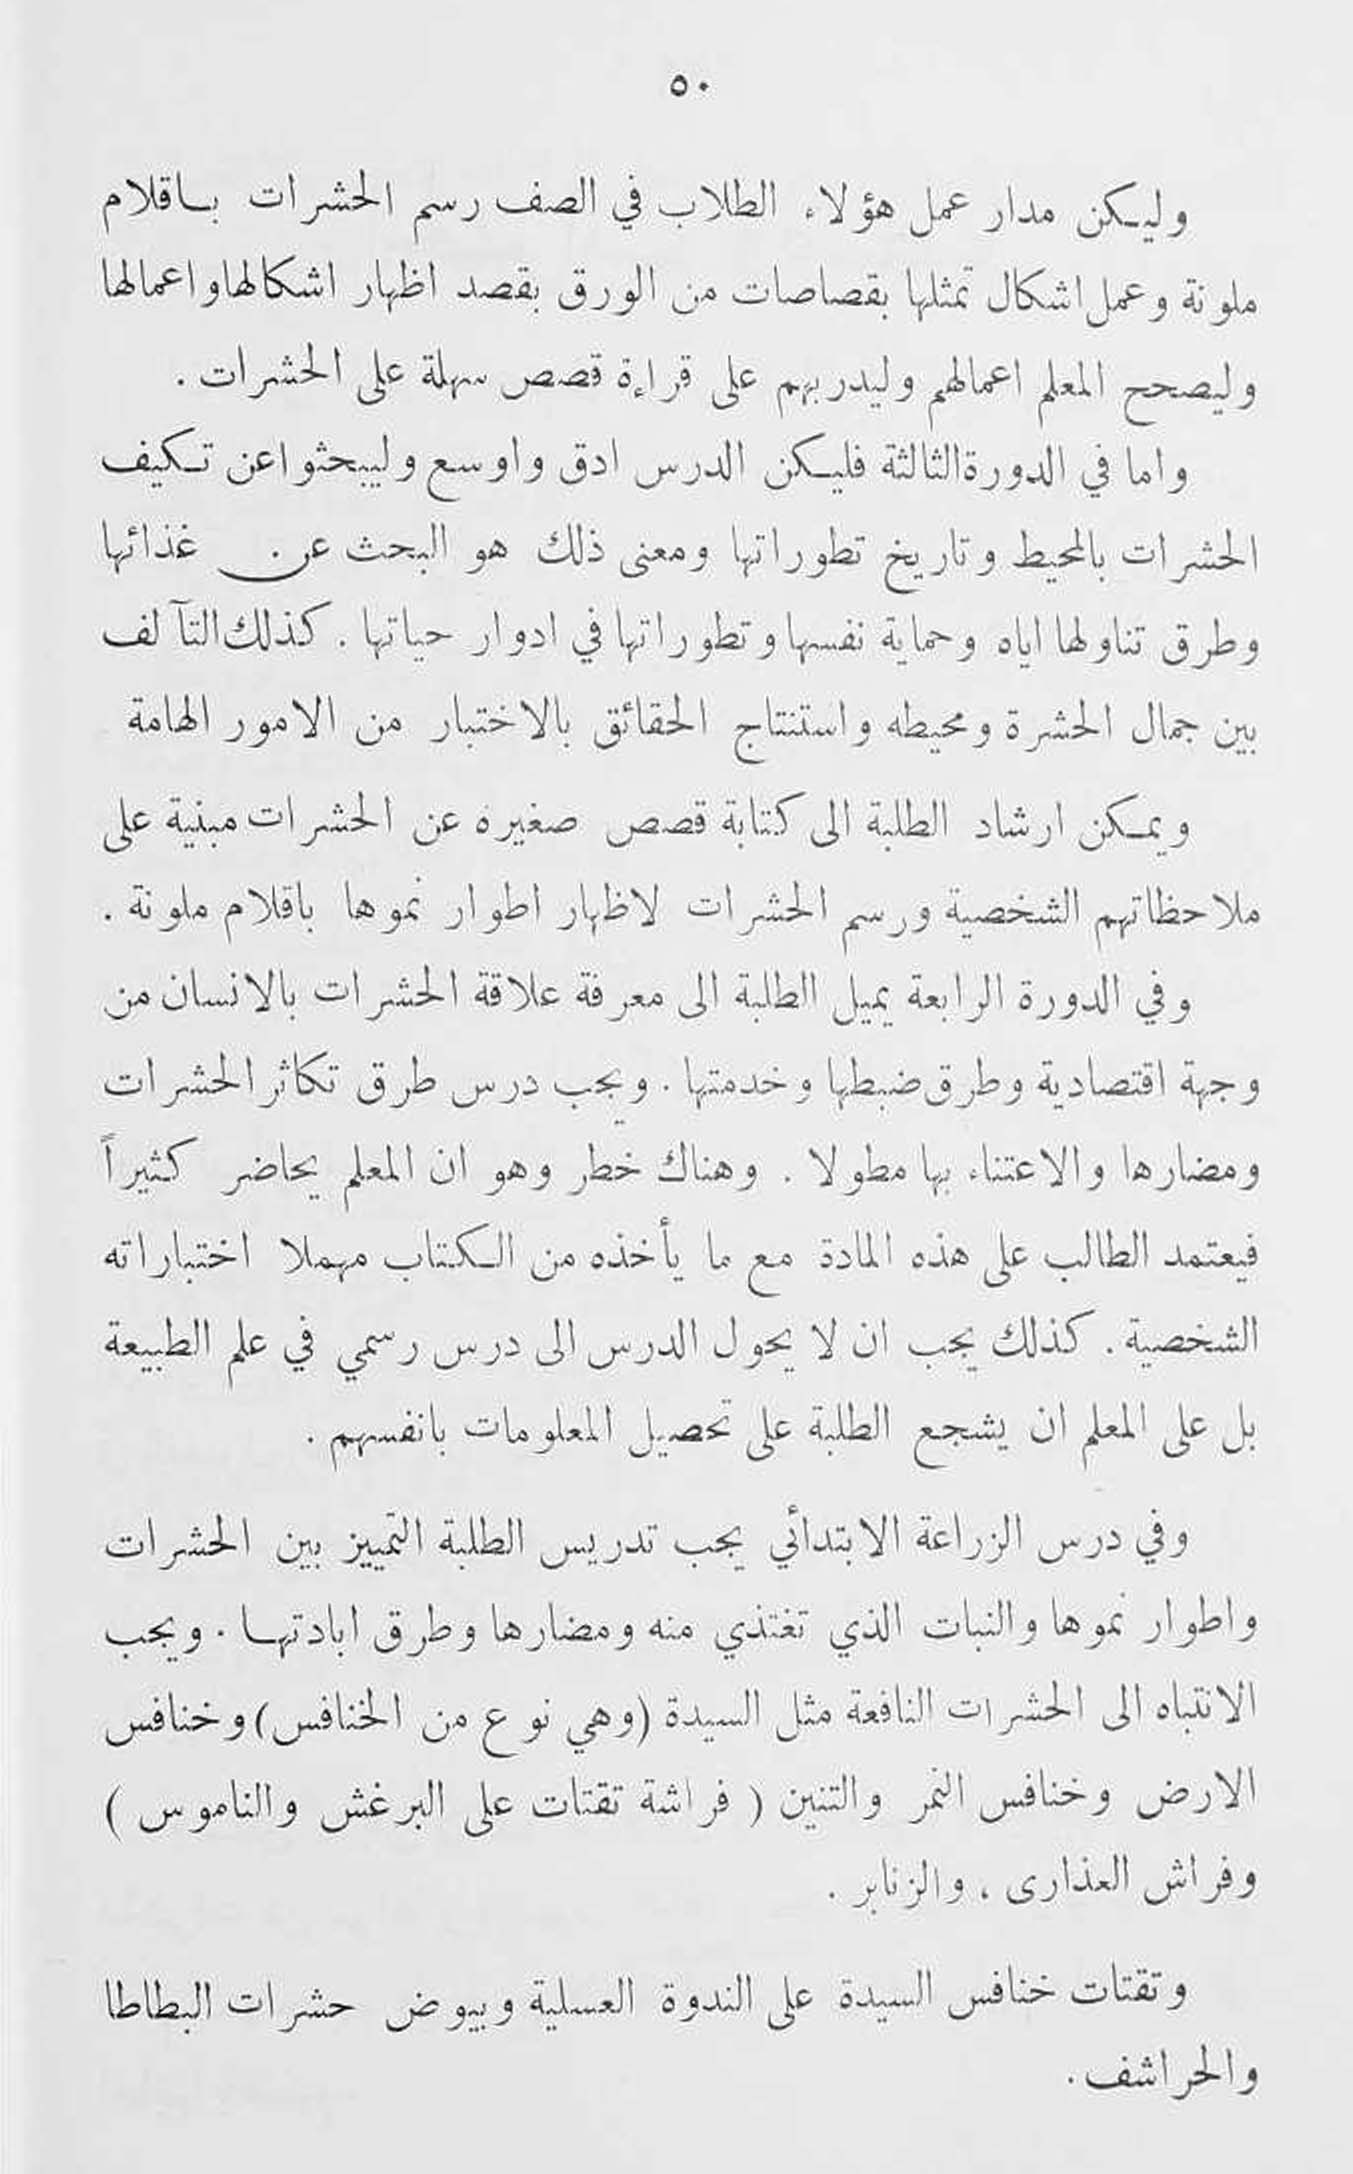 ٥٠
وليكن مدار عمل هؤلاء الطلاب في الصف رسم الحشرات باقلام
ملونة وعمل اشكال تمثلها بقصاصات من الورق بقصد اظهار اشكالها واعمالها
وليصحح المعلم اعمالهم وليدربهم على قراءة قصص سهلة على الحشرات .
واما في الدورة الثالثة فليكن الدرس ادق واوسع وليبحثوا عن تكيف
الحشرات بالمحيط وتاريخ تطوراتها ومعنى ذلك هو البحث عن غذائها
وطرق تناولها اياه وحماية نفسها وتطوراتها في ادوار حياتها . كذلك التآلف
بين جمال الحشرة ومحيطه واستنتاج الحقائق بالاختبار من الامور الهامة
ويمكن ارشاد الطلبة الى كتابة قصص صغيره عن الحشرات مبنية على
ملاحظاتهم الشخصية ورسم الحشرات لاظهار اطوار نموها باقلام ملونة .
وفي الدورة الرابعة يميل الطلبة الى معرفة علاقة الحشرات بالانسان من
وجهة اقتصادية وطرق ضبطها وخدمتها . ويجب درس طرق تكاثر الحشرات
ومضارها والاعتناء بها مطولا . وهناك خطر وهو ان المعلم يحاضر كثيراً
فيعتمد الطالب على هذه المادة مع ما يأخذه من الكتاب مهملا اختباراته
الشخصية . كذلك يجب ان لا يحول الدرس الى درس رسمي في علم الطبيعة
بل على المعلم ان يشجع الطلبة على تحصيل المعلومات بانفسهم .
وفي درس الزراعة الابتدأئي يجب تدريس الطلبة التمييز بين الحشرات
واطوار نموها والنبات الذي تغتذي منه ومضارها وطرق ابادتها . ويجب
الانتباه الى الحشرات النافعة مثل السيدة (وهي نوع من الخنافس) وخنافس
الارض وخنافس النمر والتنين ( فراشة تقتات على البرغش والناموس )
وفراش العذارى ، والزنابر .
وتقتات خنافس السيدة على الندوة العسلية وبيوض حشرات البطاطا
والحراشف .